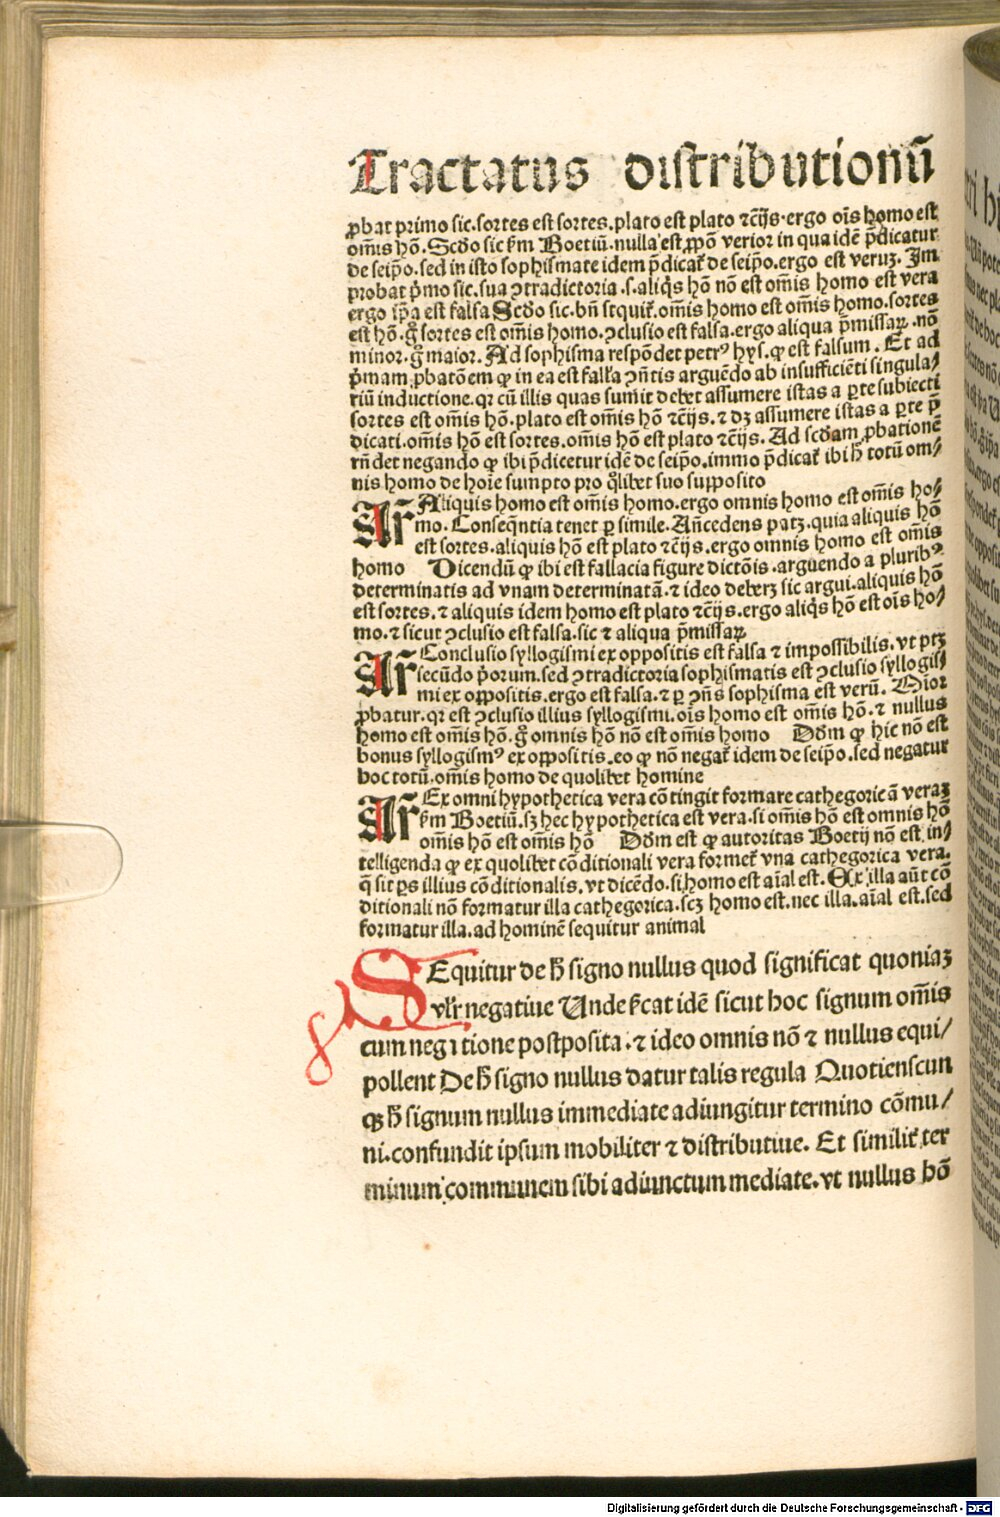 Tractatus distributionū
ꝓbat primo sic.sortes est sortes.plato est plato ⁊cꝫ̄s.ergo oīs homo est
om̄is hō.Scd̄o sic ẜm Boetiū.nulla est ꝓpō verior in qua idē p̄dicatur
de seip̄o.sed in isto sophismate idem p̄dicat̄ de seip̄o.ergo est veruꝫ.Im
probat p̄mo sic.sua ↄtradictoria .s.aliq̄s hō nō est om̄is homo est vera
ergo ip̄a est falsa Scd̄o sic.bn̄ sequit̄.om̄is homo est om̄is homo.sortes
est hō.g̊ sortes est om̄is homo.ↄclusio est falsa.ergo aliqua p̄missaꝝ.nō
minor.g̊ maior. Ad sophisma respōdet petrꝰ hys.ꝙ est falsum. Et ad
p̄mam ꝓbatōem ꝙ in ea est fall̄a ↄn̄tis arguēdo ab insufficiēti singula/
riū inductione.qꝛ cū illis quas sumit debet assumere istas a ꝑte subiecti
sortes est om̄is hō.plato est om̄is hō ⁊cꝫ̄s.⁊ dꝫ assumere istas a ꝑte p̄
dicati.om̄is hō est sortes.om̄is hō est plato ⁊cꝫ̄s. Ad scd̄am ꝓbationē
rn̄det negando ꝙ ibi p̄dicetur idē de seip̄o.immo p̄dicat̄ ibi h̄ totū om/
nis homo de hoīe sumpto pro q̄libet suo supposito
Ar̄ Aliquis homo est om̄is homo.ergo omnis homo est om̄is ho/
mo. Conseq̄ntia tenet ꝑ simile. Añcedens patꝫ.quia aliquis hō
est sortes.aliquis hō est plato ⁊cꝫ̄s.ergo omnis homo est om̄is
homo Dicendū ꝙ ibi est fallacia figure dictōis.arguendo a pluribꝰ
determinatis ad vnam determinatā.⁊ ideo deberꝫ sic argui.aliquis hō
est sortes.⁊ aliquis idem homo est plato ⁊cꝫ̄s.ergo aliq̄s hō est oīs ho/
mo.⁊ sicut ↄclusio est falsa.sic ⁊ aliqua p̄missaꝝ
Ar̄ Conclusio syllogismi ex oppositis est falsa ⁊ impossibilis.vt ptꝫ
secūdo p̄orum.sed ↄtradictoria sophismatis est ↄclusio syllogis/
mi ex oppositis.ergo est falsa.⁊ ꝑ ↄn̄s sophisma est verū. Maior
ꝓbatur.qꝛ est ↄclusio illius syllogismi.oīs homo est om̄is hō.⁊ nullus
homo est om̄is hō.g̊ omnis hō nō est om̄is homo Dd̄m ꝙ hic nō est
bonus syllogismꝰ ex oppositis.eo ꝙ nō negat̄ idem de seip̄o.sed negatur
hoc totū.om̄is homo de quolibet homine
Ar̄ Ex omni hypothetica vera cōtingit formare cathegoricā veraꝫ
ẜm Boetiū.sꝫ hec hypothetica est vera.si om̄is hō est omnis hō
om̄is hō est om̄is hō Dd̄m est ꝙ autoritas Boetij nō est in/
telligenda ꝙ ex quolibet cōditionali vera formet̄ vna cathegorica vera.
q̄ sit ꝑs illius cōditionalis.vt dicēdo.si homo est aīal est. Ex illa aūt cō
ditionali nō formatur illa cathegorica.scꝫ homo est.nec illa.aīal est.sed
formatur illa.ad hominē sequitur animal
SEquitur de h̄ signo nullus quod significat quoniaꝫ
vl̄r negatiue Unde ẜcat idē sicut hoc signum om̄is
cum negatione postposita.⁊ ideo omnis nō ⁊ nullus equi/
pollent De h̄ signo nullus datur talis regula Quotienscun
qꝫ h̄ signum nullus immediate adiungitur termino cōmu/
ni.confundit ipsum mobiliter ⁊ distributiue. Et similit̄ ter
minum communem sibi adiunctum mediate.vt nullus hō
Digitalisierung gefördert durch die Deutsche Forschungsgemeinschaft - DFG